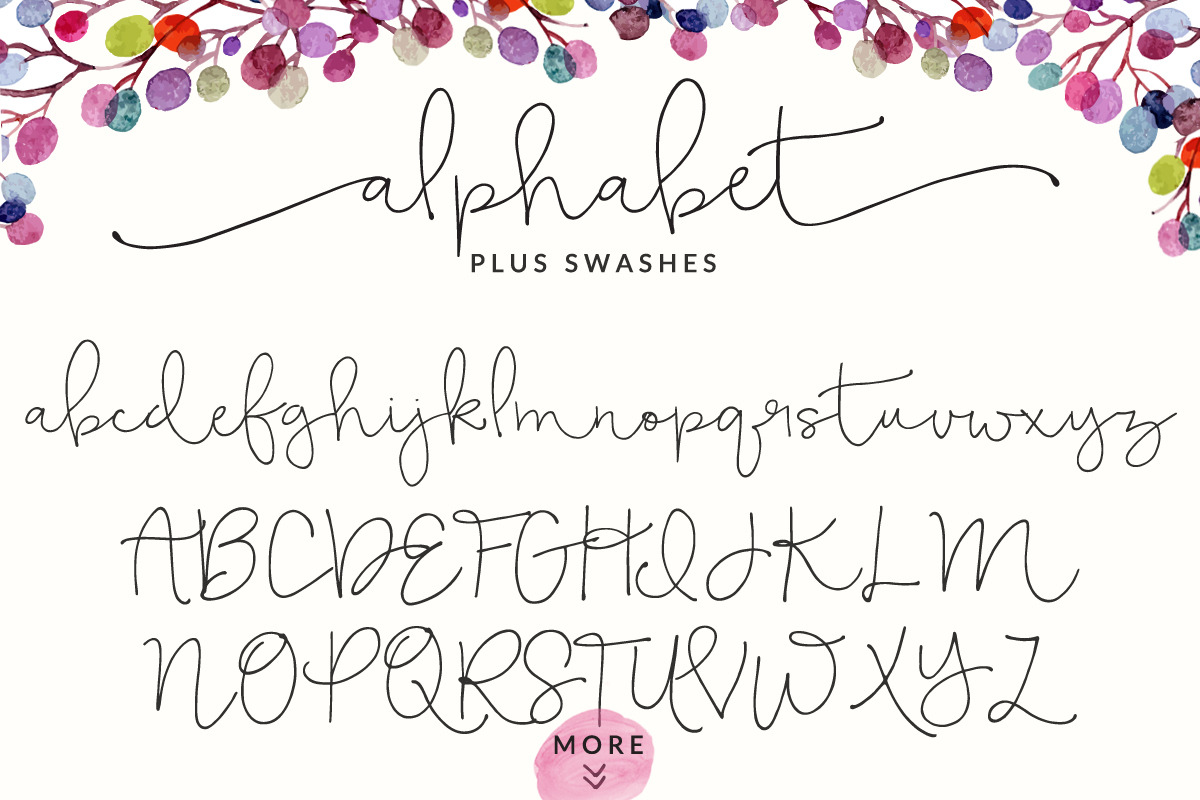 alphabet
PLUS SWASHES
abcdefghijklmnopqrstuvwxyz
ABCDEFGHIJKLM
NOPQRSTUVWXYZ
MORE